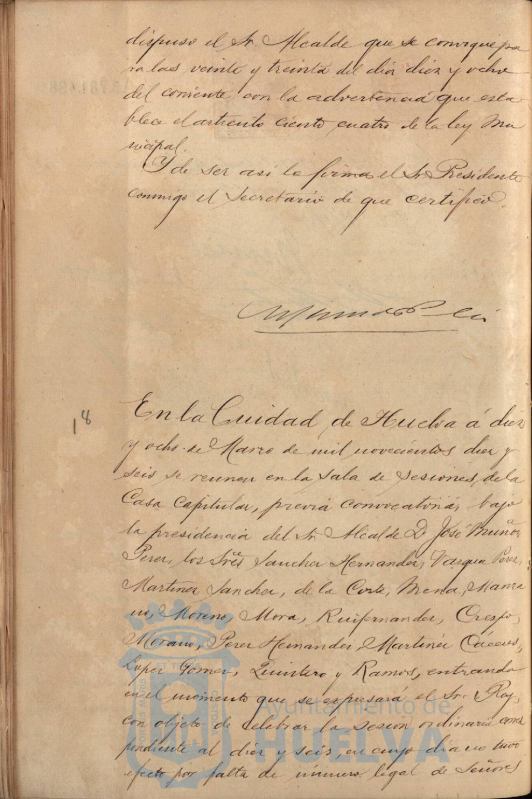 dispuso el Sr. Alcalde que se convoque pa
ra las veinte y treinta del dia diez y ocho
del corriente con la advertencia que esta
blece el articulo ciento cuatro de la ley Mu
nicipal.
Y de ser asi lo firma el Sr. Presidente
conmigo el Secretario de que certifico.
18
En la Ciudad de Huelva á diez
y ocho de Marzo de mil novecientos diez y
seis se reunen en la Sala de Sesiones, de la
Casa Capitular, previa convocatoria, bajo
la presidencia del Sr. Alcalde D. José Muñoz
Perez, los Sres Sanchez Hernandez, Vazquez Perez,
Martinez Sanchez, de la Corte, Mena, Manza
no, Moreno, Mora, Ruifernandez, Crespo,
Morano, Perez Hernandez, Martinez Cáceres,
Lopez Gomez, Quintero y Ramos, entrando
en el momento que se expresará el Sr. Rey,
con objeto de celebrar la sesion ordinaria corres
pondiente al diez y seis en cuyo dia no tuvo
efecto por falta de número legal de Señores
Ayuntamiento de
HUELVA